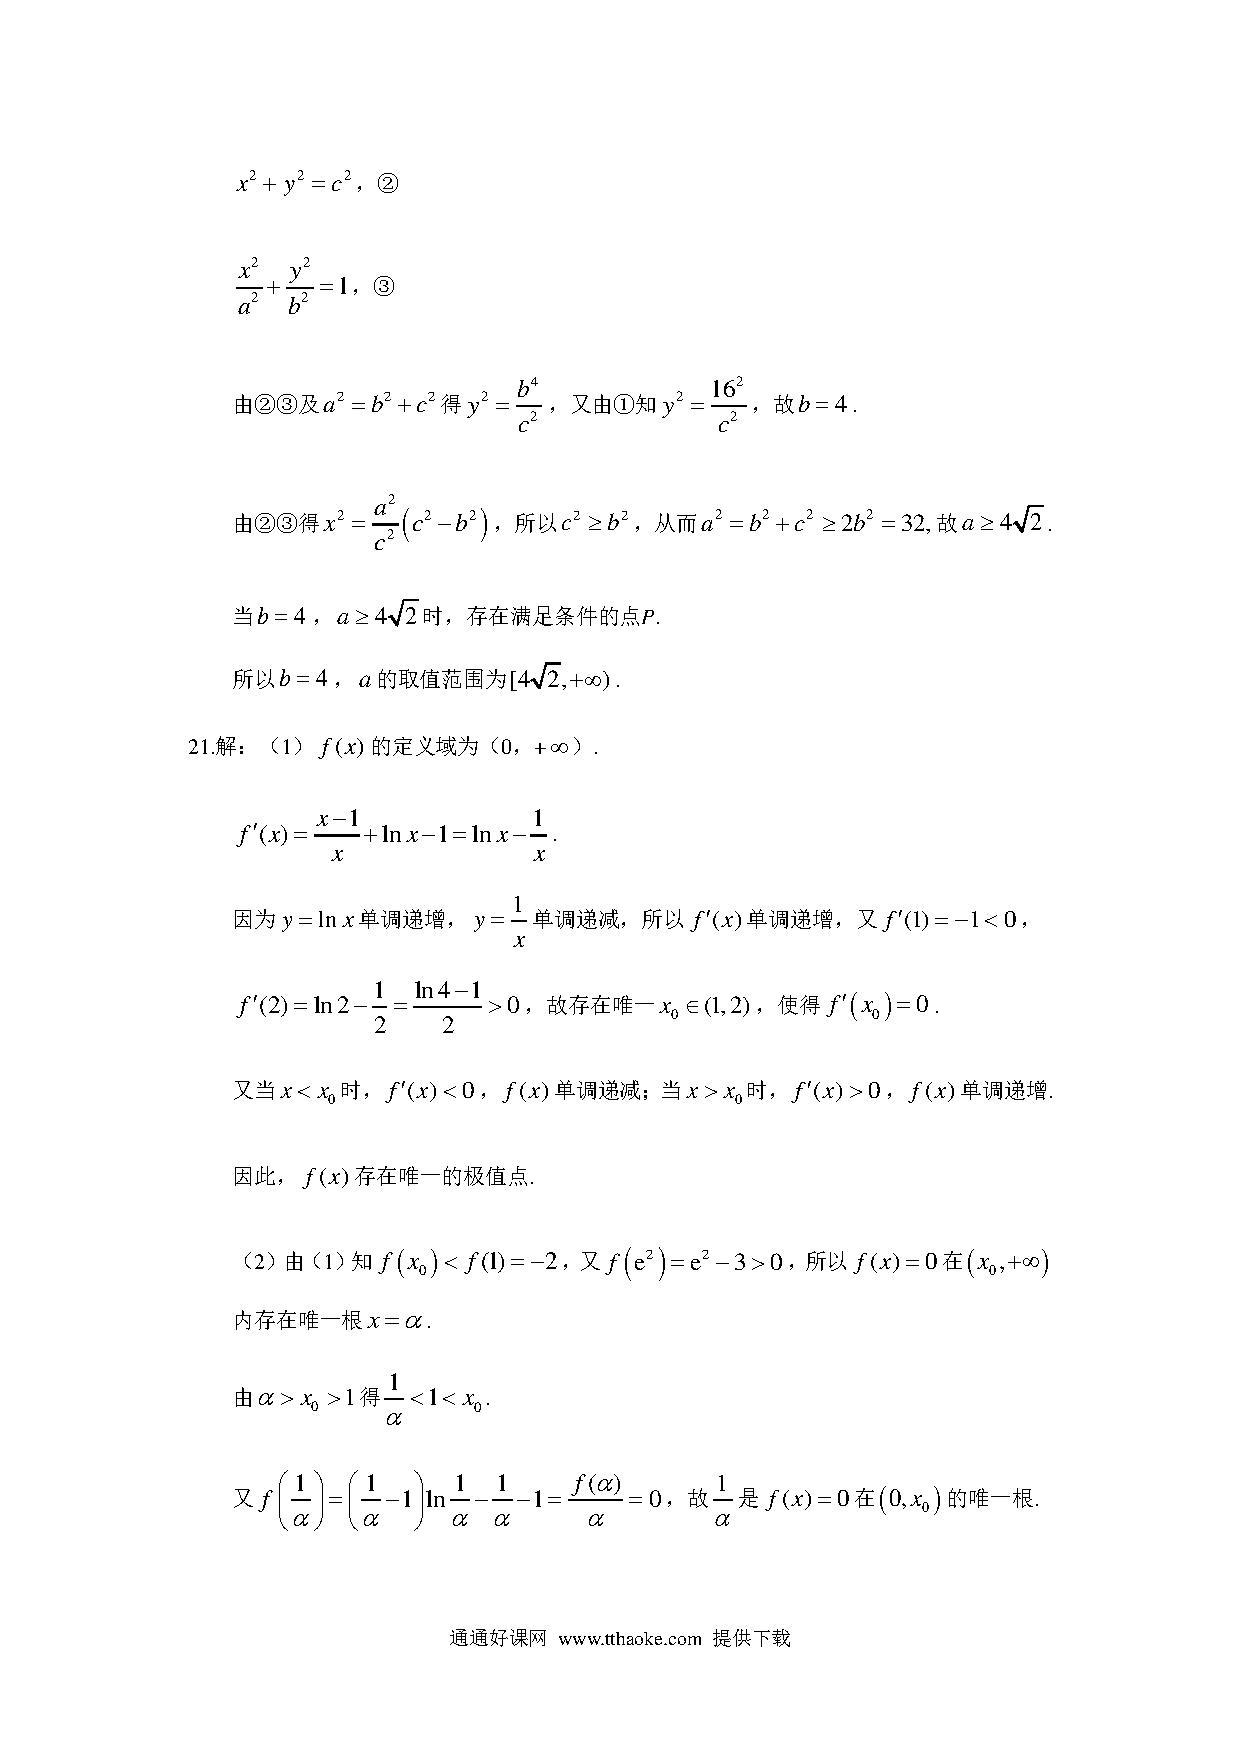 x² + y² = c²，②
x²/a² + y²/b² = 1，③
由②③及a² = b² + c²得y² = b⁴/c²，又由①知y² = 16²/c²，故b = 4.
由②③得x² = a²/c² (c² − b²)，所以c² ≥ b²，从而a² = b² + c² ≥ 2b² = 32,故a ≥ 4√2.
当b = 4，a ≥ 4√2时，存在满足条件的点P.
所以b = 4，a的取值范围为[4√2,+∞).
21.解：（1）f(x)的定义域为（0，+∞）.
f′(x) = (x−1)/x + ln x − 1 = ln x − 1/x.
因为y = ln x单调递增，y = 1/x单调递减，所以f′(x)单调递增，又f′(1) = −1 < 0，
f′(2) = ln 2 − 1/2 = (ln 4 − 1)/2 > 0，故存在唯一x₀ ∈ (1,2)，使得f′(x₀) = 0.
又当x < x₀时，f′(x) < 0，f(x)单调递减；当x > x₀时，f′(x) > 0，f(x)单调递增.
因此，f(x)存在唯一的极值点.
（2）由（1）知f(x₀) < f(1) = −2，又f(e²) = e² − 3 > 0，所以f(x) = 0在(x₀,+∞)
内存在唯一根x = α.
由α > x₀ > 1得1/α < 1 < x₀.
又f(1/α) = (1/α − 1)ln 1/α − 1/α − 1 = f(α)/α = 0，故1/α是f(x) = 0在(0,x₀)的唯一根.
通通好课网 www.tthaoke.com 提供下载